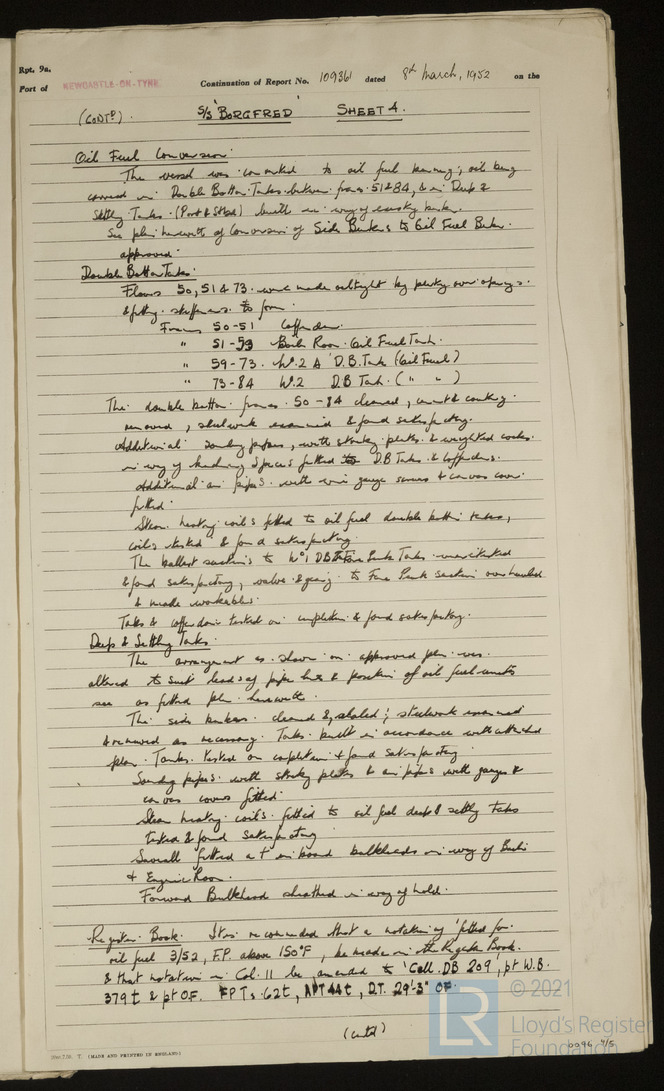 Rpt. 9a.
Port of NEWCASTLE-ON-TYNE Continuation of Report No. 109361 dated 8th March, 1952 on the
(CONTD). S/S 'BORGFRED' SHEET 4.
Oil Fuel Conversion.
The vessel was converted to oil fuel burning; oil being
carried in Double Bottom Tanks between frames 51 & 84, & in Deep &
Settling Tanks (Port & Stbd) built in way of existing bunker.
See plan herewith of Conversion of Side Bunkers to Oil Fuel Bunker.
approved.
Double Bottom Tanks.
Floors 50, 51 & 73 were made oiltight by plating over openings
& fitting stiffeners to form.
Frames 50-51 Cofferdam.
" 51-59 Boiler Room Oil Fuel Tank.
" 59-73. No.2 A D.B. Tank (Oil Fuel)
" 73-84 No.2 D.B Tank. ( " " )
The double bottom frames 50-84 cleaned, cement & coating
removed, steelwork examined & found satisfactory.
Additional sounding pipes, with striking plates & weighted cocks
in way of machinery spaces fitted to D.B Tanks & Cofferdams.
Additional air pipes with wire gauze screens & canvas cover
fitted.
Steam heating coils fitted to oil fuel double bottom tanks,
coils tested & found satisfactory.
The ballast suctions to No 1 DBT & Fore Peak Tanks
& found satisfactory, valve & gearing to Fore Peak suction overhauled
& made workable.
Tanks & cofferdam tested on completion & found satisfactory.
Deep & Settling Tanks.
The arrangement as shown on approved plan was
altered to suit leads of pipe line & position of oil fuel units
see as fitted plan herewith.
The side bunkers cleaned & scaled; steelwork examined
& renewed as necessary. Tanks built in accordance with attached
plan. Tanks tested on completion & found satisfactory.
Sounding pipes with striking plates & air pipes with gauze &
canvas covers fitted.
Steam heating coils fitted to oil fuel deep & settling tanks
tested & found satisfactory
Saveall fitted at inboard bulkheads in way of Boiler
& Engine Room.
Forward Bulkhead sheathed in way of hold.
Register Book. It is recommended that a notation of 'fitted for
oil fuel 3/52, F.P. above 150°F, be made in the Register Book.
& that notation in Col. 11 be amended to 'Cell. DB 209', pt W.B.
379t & pt O.F. FPT 62t, APT 44t, D.T. 29'-3" OF.
(contd)
© 2021
Lloyd's Register
Foundation
T. (MADE AND PRINTED IN ENGLAND)
0096 4/5